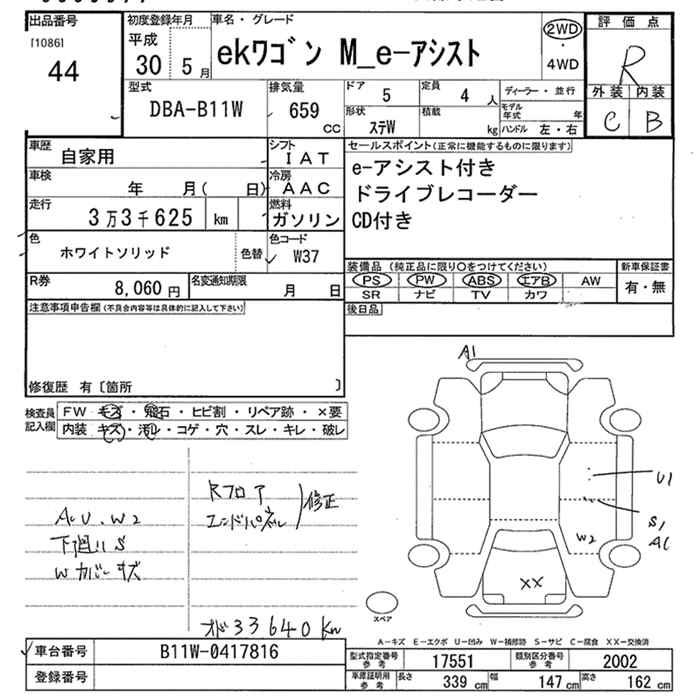 出品番号
[1086]
44
初度登録年月
平成
30 5月
車名・グレード
ekワゴン M_e-アシスト
2WD
・
4WD
評価点
R
外装 内装
C B
型式
DBA-B11W
排気量
659
CC
ドア
5
定員
4 人
形状
ステW
積載
kg
ディーラー・並行
モデル
年式 年
ハンドル 左・右
車歴
自家用
シフト
IAT
車検
年 月( 日)
冷房
AAC
走行
3万3千625 km
燃料
ガソリン
色
ホワイトソリッド
色替
色コード
W37
R券
8,060円
名変通知期限
月 日
セールスポイント(正常に機能するものに限ります)
e-アシスト付き
ドライブレコーダー
CD付き
装備品 (純正品に限り○をつけてください) 新車保証書
PS PW ABS エアB AW
SR ナビ TV カワ
有・無
後日品
注意事項申告欄(不具合内容等は具体的に記入して下さい)
修復歴 有〔箇所 〕
検査員
記入欄
FW キズ・飛石・ヒビ割・リペア跡・×要
内装 キズ・汚レ・コゲ・穴・スレ・キレ・破レ
AcU.W2
下廻りS
Wカバーキズ
Rフロア
エンドパネル
修正
オド33640Km
A1
U1
S1
A1
W2
XX
スペア
A-キズ E-エクボ U-凹み W-補修跡 S-サビ C-腐食 XX-交換済
車台番号
B11W-0417816
登録番号
型式指定番号
参考
17551
類別区分番号
参考
2002
車庫証明用
参考
長さ 339cm
幅 147cm
高さ 162cm